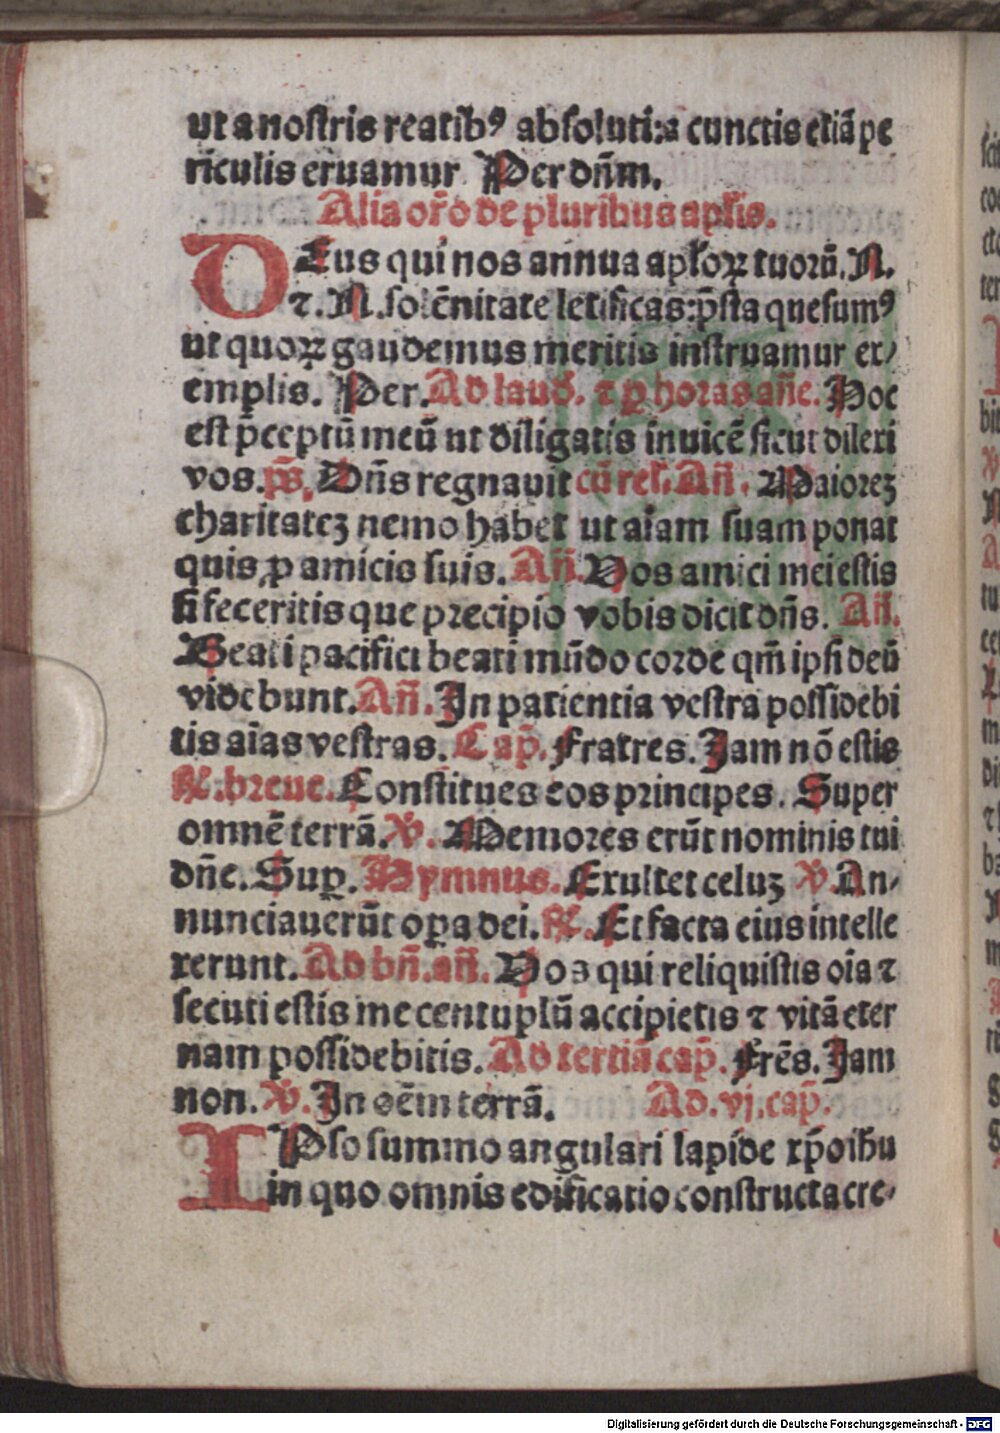 ut a nostris reatibꝰ absoluti: a cunctis etiā pe
riculis eruamur Per dn̄m.
Alia or̄o de pluribus aplis.
DEus qui nos annua apl'oꝝ tuorū. N.
⁊. N. solēnitate letificas: p̄sta quesumꝰ
ut quoꝝ gaudemus meritis instruamur ex/
emplis. Per. Ad laud'. ⁊ ꝑ horas an̄e. Hoc
est p̄ceptū meū ut diligatis inuicē sicut dilexi
vos. ps̄. Dn̄s regnauit cū rel'. An̄. Maiorēꝫ
charitateꝫ nemo habet ut aīam suam ponat
quis ꝓ amicis suis. An̄. Vos amici mei estis
si feceritis que precipio vobis dicit dn̄s. An̄.
Beati pacifici beati mūdo corde qm̄ ipsi deū
videbunt. An̄. In patientia vestra possidebi
tis aīas vestras. Cap̄. Fratres. Jam nō estis
℟. breue. Constitues eos principes. Super
omnē terrā. ℣. Memores erūt nominis tui
dn̄e. Suꝑ. Hymnus. Exultet celuꝫ ℣. An/
nunciauerūt oꝑa dei. ℟. Et facta eius intelle
xerunt. Ad bn̄. an̄. Vos qui reliquistis oīa ⁊
secuti estis me centuplū accipietis ⁊ vitā eter
nam possidebitis. Ad tertiā cap̄. Frēs. Jam
non. ℣. In oēm terrā. Ad. vj. cap̄.
IPso summo angulari lapide xp̄o ihu
in quo omnis edificatio constructa cre/
Digitalisierung gefördert durch die Deutsche Forschungsgemeinschaft - DFG